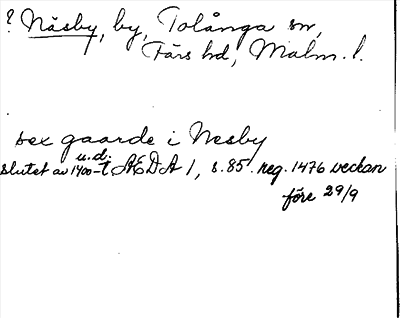 ? Näsby, by, Tolånga sn,
Färs hd, Malm. l.
sex gaarde i Nesby
u.d.
slutet av 1400-t ÆDA 1, s. 85. reg. 1476 veckan
före 29/9